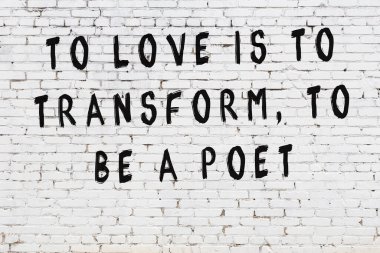 TO LOVE IS TO
TRANSFORM, TO
BE A POET